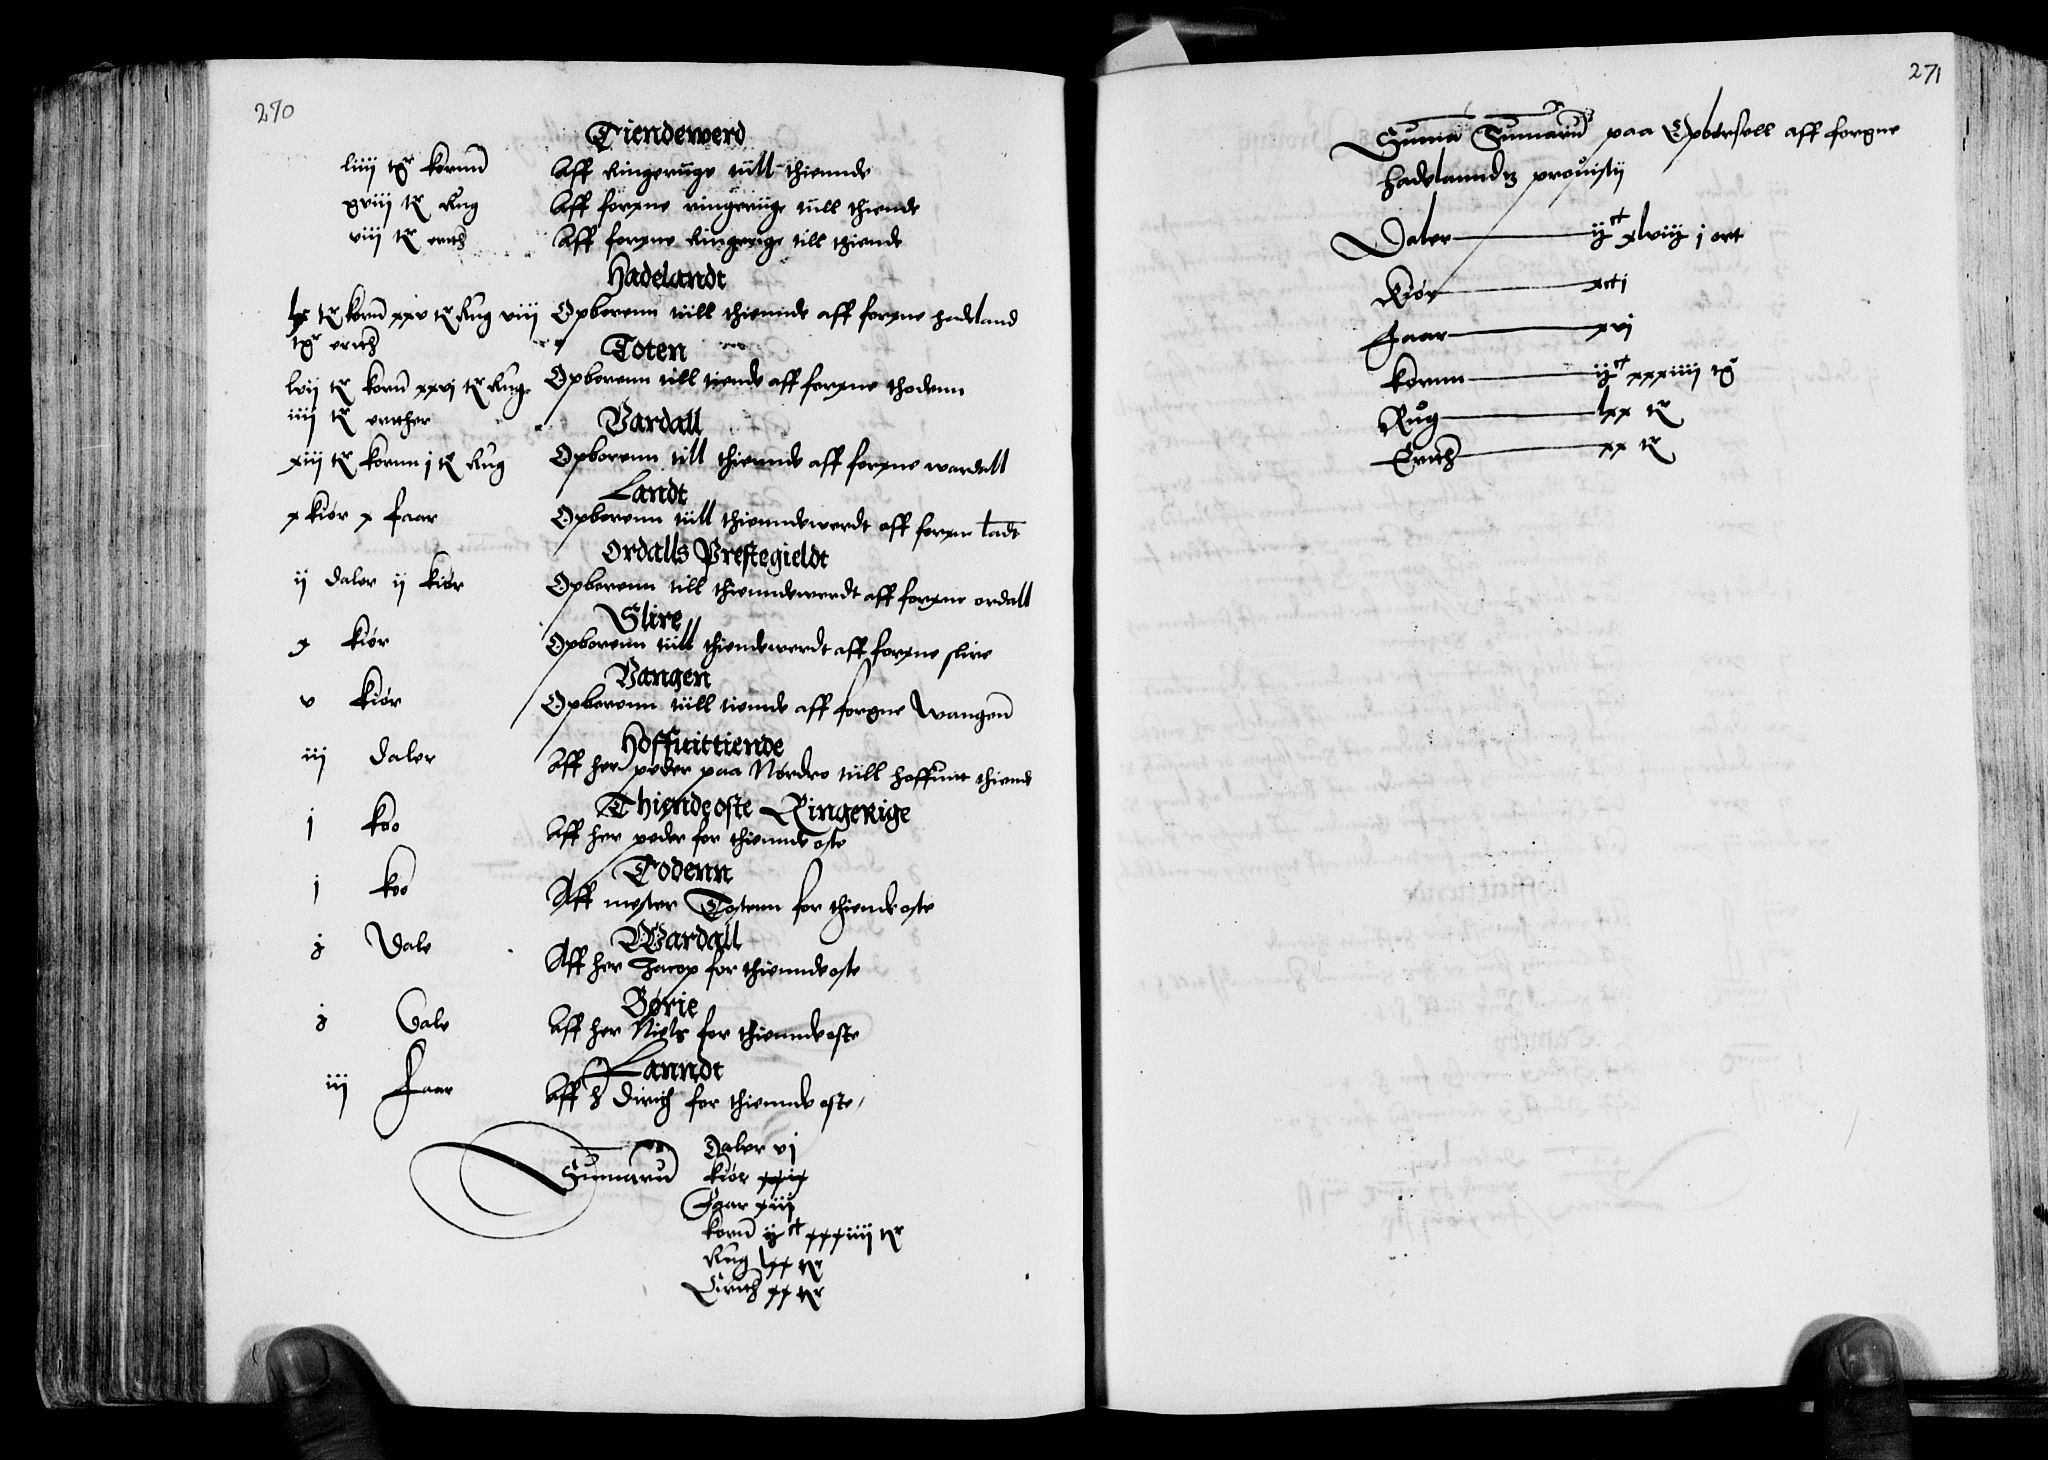 270
Tiendewerd
liiij tr kornn Aff Ringeruge till thiennde
xviij tr Rug Aff forne ringeriige till thiende
viij tr erith Aff forne Ringerige till thiende
Hadelandt
lx tr korn xxv tr Rug viij Opborenn till thiennde aff forne hadeland
tr erith
Toten
lvij tr korn xxvj tr Rug Opborenn till tiende aff forne thodenn
iiij tr erither
Vardall
xiij tr kornn j tr Rug Opborenn till thiennde aff forne wardall
Landt
x kiør x faar Opborenn till thienndewerdt aff forne ladt
Ordalls Prestegieldt
ij daler ij kiør Opborenn till thienndewerdt aff forne ordall
Slire
x kiør Opborenn till thiendewerdt aff forne slire
Vangen
v kiør Opborenn till tiennde aff forgne Wangen
Hoffuittiende
iij daler Aff her peder paa Nørdre till hoffuit thiende
Thiende oste Ringerige
j koo Aff her peder for thiennde oste
Todenn
j koo Aff mester Tostenn for thiende oste
Wardall
j Dale Aff her Jacop for thiennde oste
Børie
j Dale Aff her Niels for thiennde oste
Lanndt
iij faar Aff h Dirich for thiennde oste
Sumarum Daler vj
kiør
Faar xiij
korn ijct xxxiiij tr
Rug lxx tr
Erith xx tr
271
Suma Sumarum paa Opbørsell aff forgne
hadelanndz prouisti
Daler ijct xlviij j ort
Kiør
Faar xvj
kornn ijct xxxiiij tr
Rug lxx tr
Erith xx tr